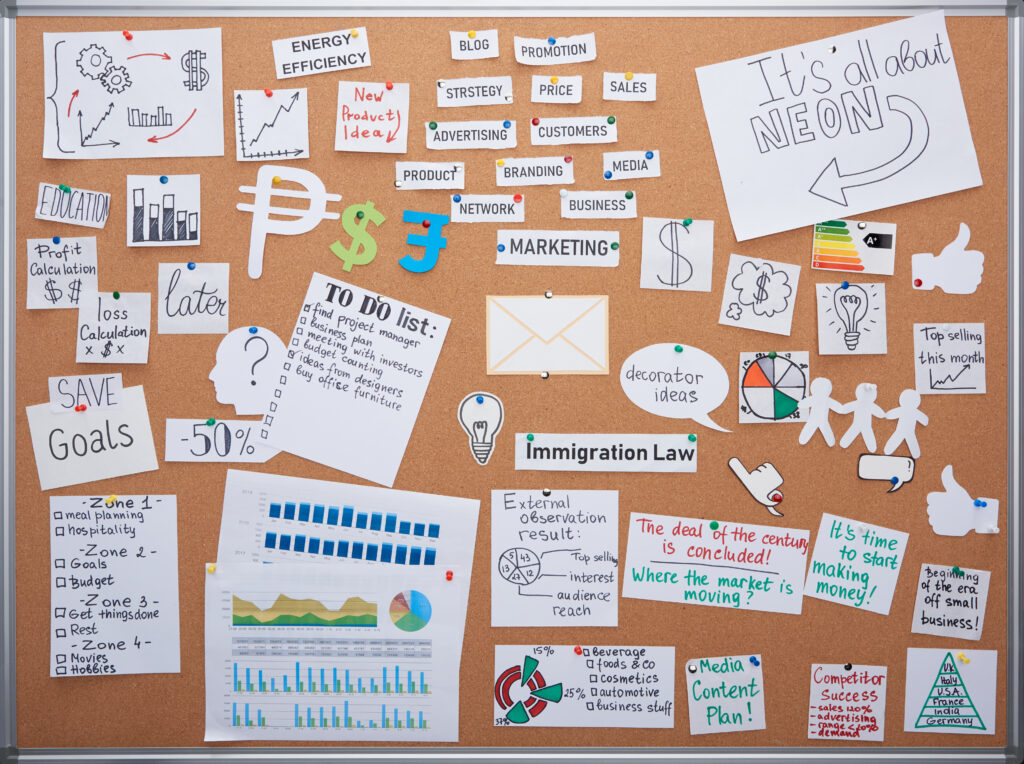 ENERGY
EFFICIENCY
BLOG
PROMOTION
STRSTEGY
PRICE
SALES
New
Product
Idea
ADVERTISING
CUSTOMERS
PRODUCT
BRANDING
MEDIA
NETWORK
BUSINESS
MARKETING
It's all about
NEON
EDUCATION
Profit
Calculation
$ $
loss
Calculation
x $ x
later
TO DO list:
find project manager
business plan
meeting with investors
budget counting
ideas from designers
buy office furniture
?
A+
SAVE
Goals
-50%
decorator
ideas
Top selling
this month
Immigration Law
- Zone 1 -
meal planning
hospitality
- Zone 2 -
Goals
Budget
- Zone 3 -
Get things done
Rest
- Zone 4 -
Movies
Hobbies
External
observation
result:
5 43
13
27 12
Top selling
interest
audience
reach
The deal of the century
is concluded!
Where the market is
moving?
It's time
to start
making
money!
Beginning
of the era
off small
business!
15%
25%
37%
Beverage
foods & Co
cosmetics
automotive
business stuff
Media
Content
Plan!
Competitor
Success
- sales 120%
- advertising
- range <70%
- demand
UK
Italy
U.S.A.
France
India
Germany